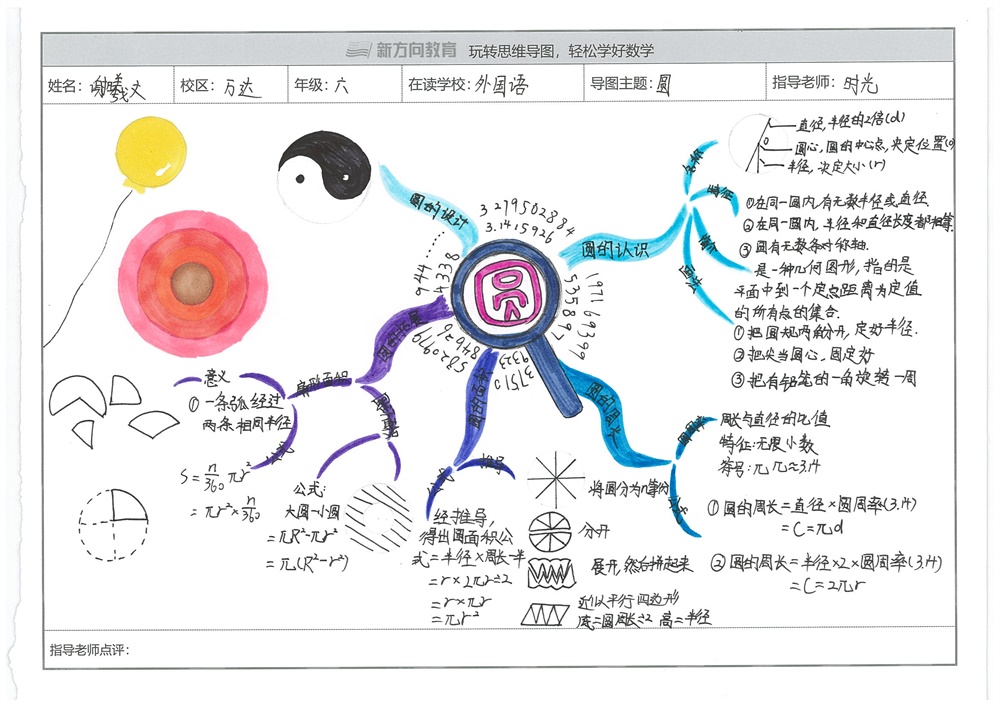 新方向教育 玩转思维导图，轻松学好数学
姓名：
校区：万达
年级：六
在读学校：外国语
导图主题：圆
指导老师：时光
圆
3.1415926
535897
9323
84626
4338
3279502884
1971
69399
37510
58209
944……
圆的设计
圆的认识
名称
直径，半径的2倍(d)
圆心，圆的中心点，决定位置(o)
半径，决定大小(r)
o
特征
①在同一圆内，有无数半径或直径.
②在同一圆内，半径和直径长度都相等.
③圆有无数条对称轴.
是一种几何图形，指的是
平面中到一个定点距离为定值
的所有点的集合.
画法
①把圆规两角分开，定好半径.
②把尖当圆心，固定好
③把有铅笔的一角旋转一周
圆的周长
圆周率
周长与直径的比值
特征：无限小数
符号：π π≈3.14
公式
①圆的周长=直径×圆周率(3.14)
=C=πd
②圆的周长=半径×2×圆周率(3.14)
=C=2πr
圆的面积
推导
将圆分为n等分
分开
展开，然后拼起来
近似平行四边形
底=圆周长÷2 高=半径
公式
经推导，
得出圆面积公
式=半径×周长一半
=r×2πr÷2
=r×πr
=πr²
扇形面积
意义
①一条弧经过
两条相同半径
公式
S=n/360 πr²
=πr²×n/360
公式：
大圆-小圆
=πR²-πr²
=π(R²-r²)
指导老师点评：